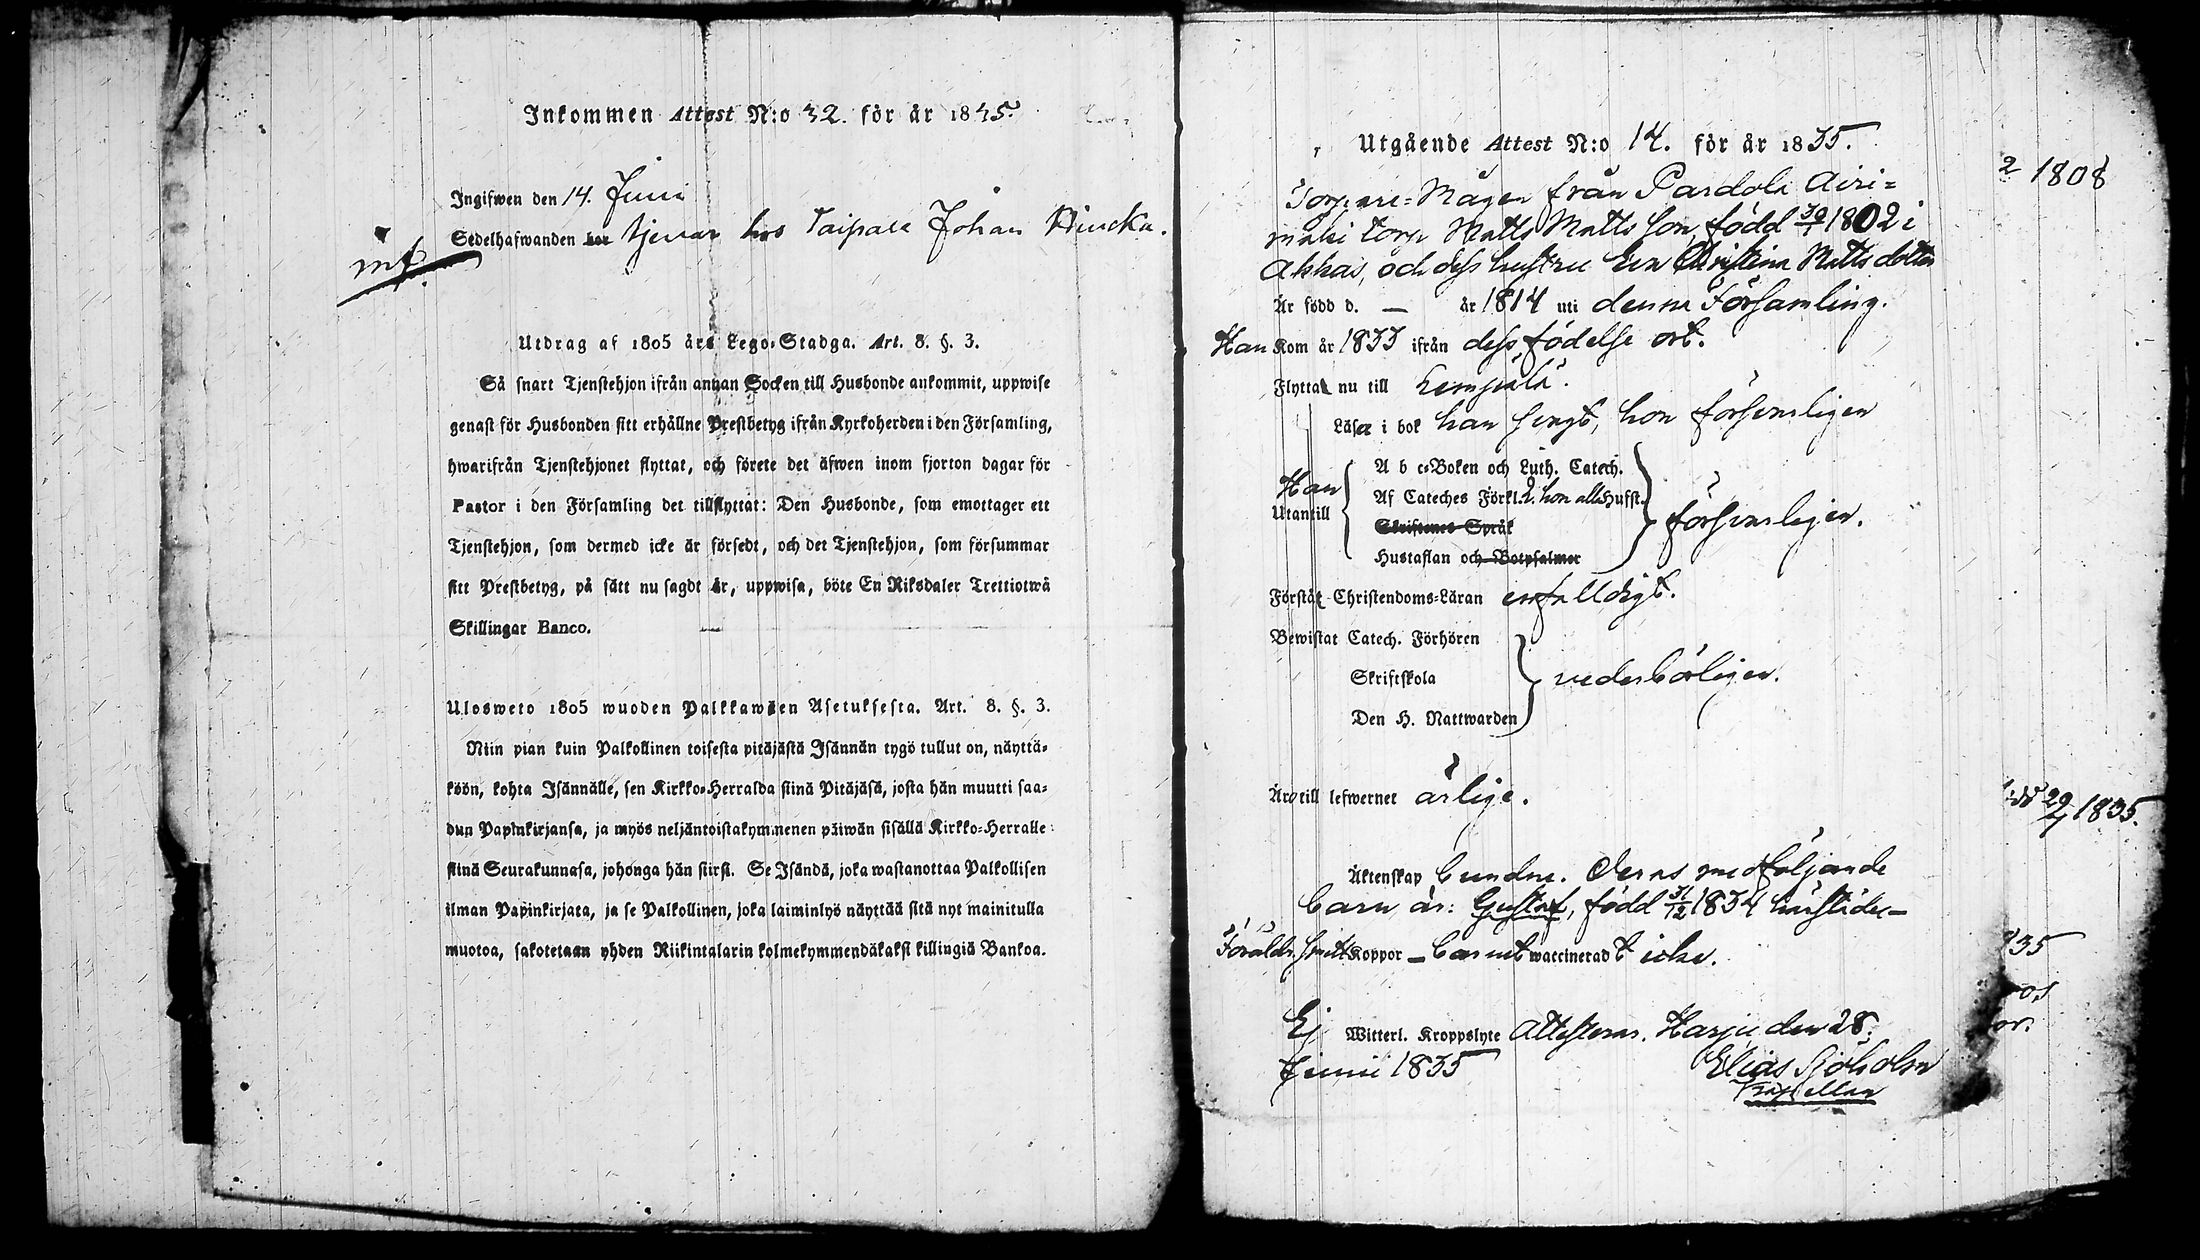 Inkommen Attest N:o 32. för år 1835.
Ingifwen den 14. Juni
Sedelhafwanden bor tjenar hos Taipale Johan Hincka.
int.
Utdrag af 1805 års Lego-Stadga. Art. 8. §. 3.
Så snart Tjenstehjon ifrån annan Socken till Husbonde ankommit, uppwise
genast för Husbonden sitt erhållne Prestbetyg ifrån Kyrkoherden i den Församling,
hwarifrån Tjenstehjonet flyttat, och förete det äfwen inom fjorton dagar för
Pastor i den Församling det tillflyttat: Den Husbonde, som emottager ett
Tjenstehjon, som dermed icke är försedt, och det Tjenstehjon, som försummar
sitt Prestbetyg, på sätt nu sagdt är, uppwisa, böte En Riksdaler Trettiotwå
Skillingar Banco.
Ulosweto 1805 wuoden Palkkawäen Asetuksesta. Art. 8. §. 3.
Niin pian kuin Palkollinen toisesta pitäjästä Isännän tygö tullut on, näyttä-
köön, kohta Isännälle, sen Kirkko-Herralda siinä Pitäjäsä, josta hän muutti saa-
dun Papinkirjansa, ja myös neljäntoistakymmenen päiwän sisällä Kirkko-Herralle
siinä Seurakunnasa, johonga hän siirsi. Se Isändä, joka wastanottaa Palkollisen
ilman Papinkirjata, ja se Palkollinen, joka laiminlyö näyttää sitä nyt mainitulla
muotoa, sakotetaan yhden Riikintalarin kolmekymmendäkaksi killingiä Bankoa.
Utgående Attest N:o 14. för år 1835.
Torpare-Mågen från Pardola Airi=
mäki torp Matts Mattsson, född 30/1 1802 i
Akkas, och dess hustru Eva Christina Matts dotter
Är född d. — år 1814 uti denna Församling.
Han Kom år 1833 ifrån dess födelse ort.
Flytta nu till Lempälä.
Läsa i bok han svagt, hon försvarligen
Han
Utantill
A b c-Boken och Luth. Catech.
Af Cateches Förkl. 2. hon all. Hufst.
Skriftenes Språk
Hustaflan och Botpsalmer
försvarligen.
Förstå Christendoms-Läran enfalldigt.
Bewistat Catech. Förhören
Skriftskola
Den H. Nattwarden
vederbörligen.
Äro till lefwernet ärlige.
Äktenskap bundne. Deras medföljande
barn är: Gustaf, född 31/12 1834 härstädes
Föräldr. haft Koppor — barnet waccinerad t icke.
Ej Witterl. Kroppslyte Attesteras. Harju den 28.
Junii 1835
Elias Sjöholm
Kapellan
2 1808
29/7 1835.
35